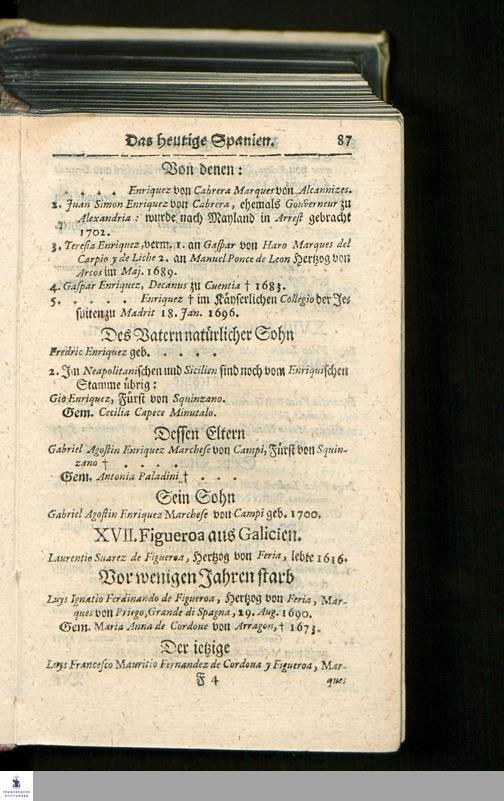 Das heutige Spanien. 87
Von denen:
. . . . Enriquez von Cabrera Marquer von Alcannizes.
2. Juan Simon Enriquez von Cabrera, ehemals Gouverneur zu
Alexandria: wurde nach Mayland in Arrest gebracht
1702.
3. Teresia Enriquez, verm. 1. an Gaspar von Haro Marques del
Carpio y de Liche 2. an Manuel Ponce de Leon Hertzog von
Arcos im Maj. 1689.
4. Gaspar Enriquez, Decanus zu Cuentia † 1683.
5. . . . . Enriquez † im Käyserlichen Collegio der Je-
suiten zu Madrit 18. Jan. 1696.
Des Vatern natürlicher Sohn
Fredric Enriquez geb. . . . .
2. Im Neapolitanischen und Sicilien sind noch vom Enriquischen
Stamme übrig:
Gio Enriquez, Fürst von Squinzano.
Gem. Cecilia Capece Minutalo.
Dessen Eltern
Gabriel Agostin Enriquez Marchese von Campi, Fürst von Squin-
zano † . . . .
Gem. Antonia Paladini † . . .
Sein Sohn
Gabriel Agostin Enriquez Marchese von Campi geb. 1700.
XVII. Figueroa aus Galicien.
Laurentio Suarez de Figueroa, Hertzog von Feria, lebte 1616.
Vor wenigen Jahren starb
Luys Ignatio Ferdinando de Figueroa, Hertzog von Feria, Mar-
ques von Priego, Grande di Spagna, 29. Aug. 1690.
Gem. Maria Anna de Cordoue von Arragon, † 1673.
Der ietzige
Luys Francesco Mauritio Fernandez de Cordoua y Figueroa, Mar-
F 4 ques
FRANCKESCHE
STIFTUNGEN